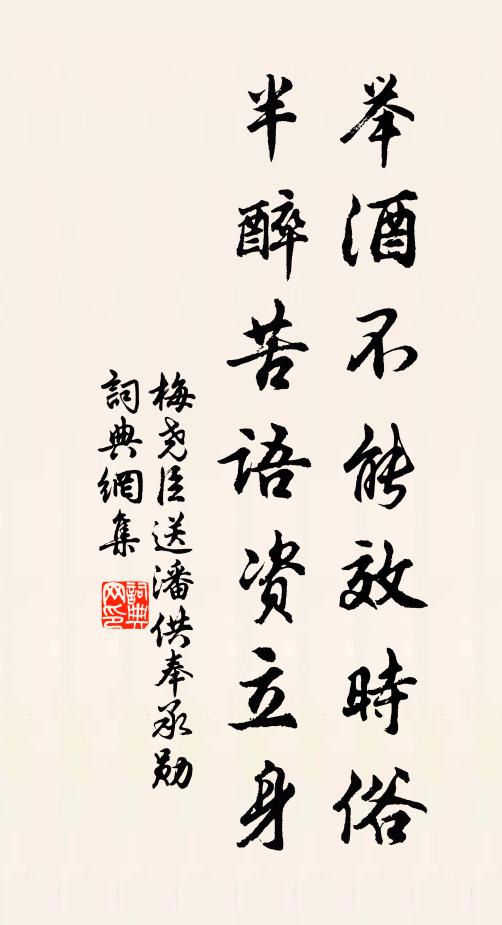 举酒不能效時俗
半醉苦语资立身
梅尧臣送潘供奉承勋
詞典網集
詞典网印